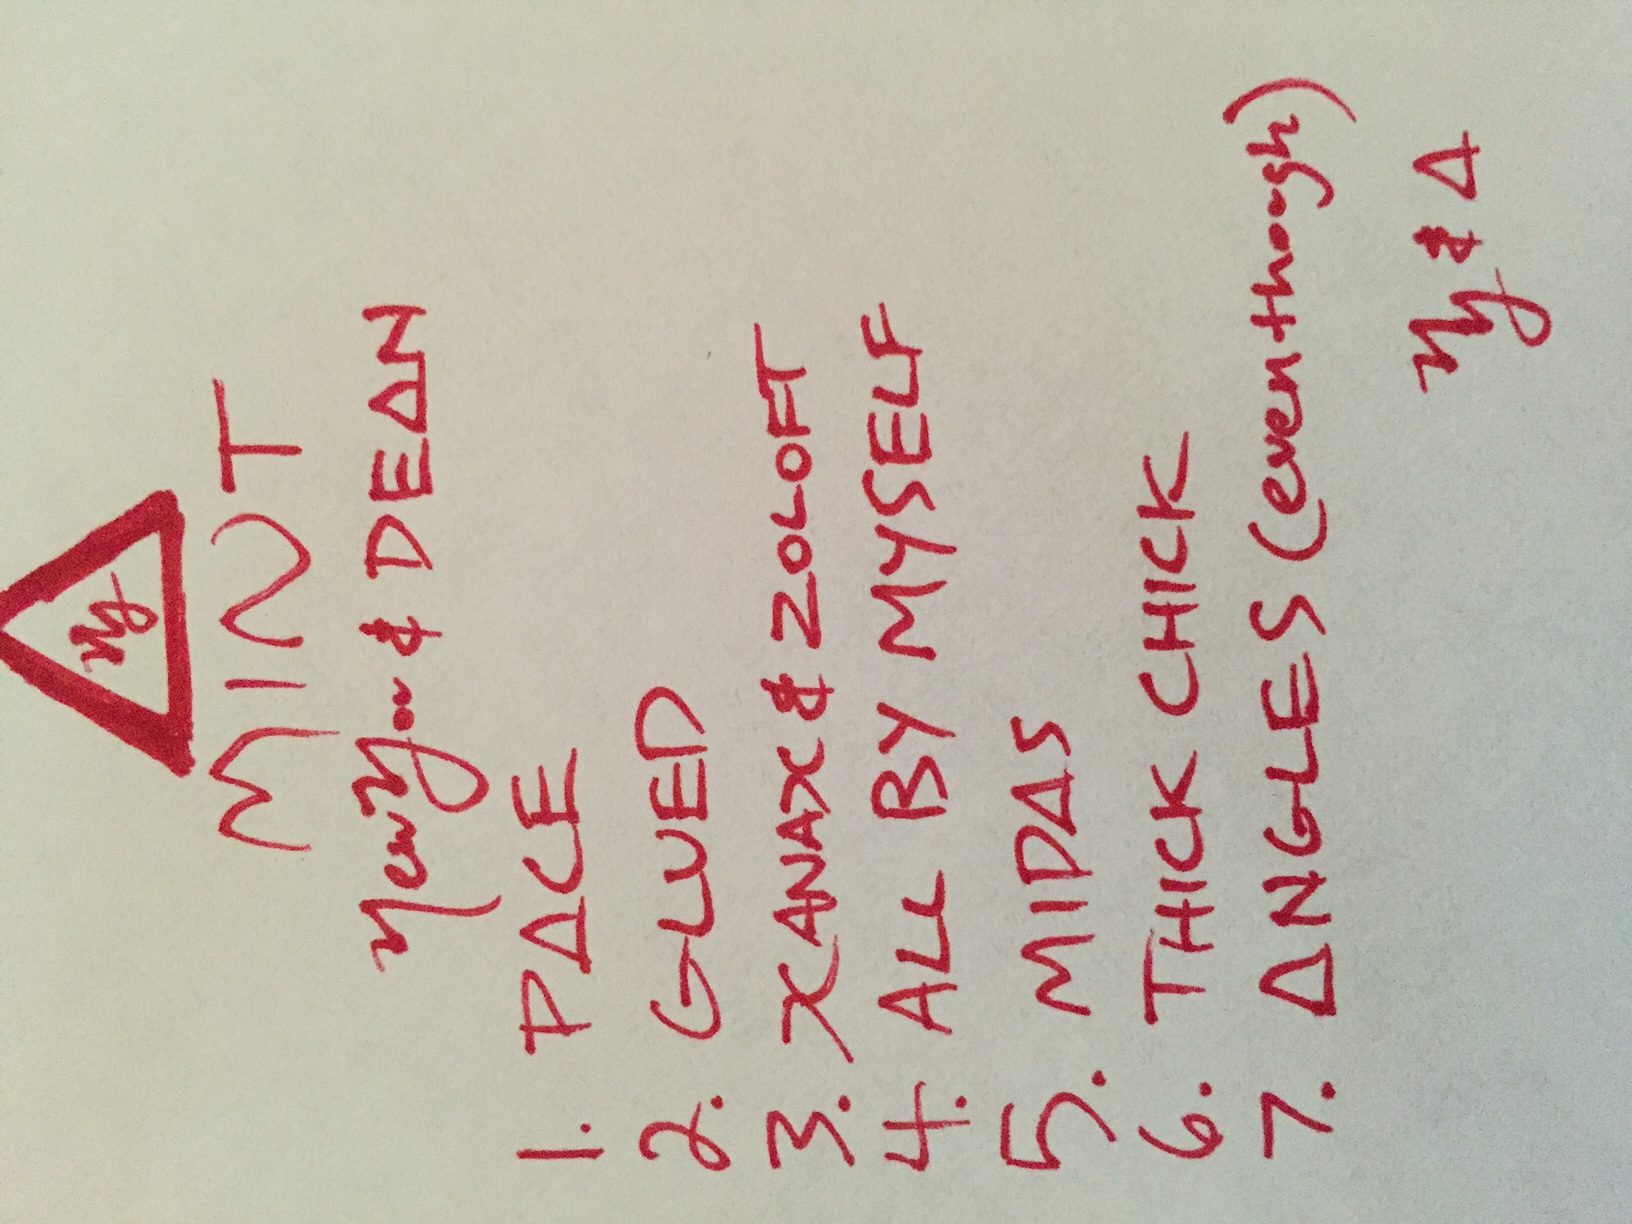 Ny
MINT
& DEAN
1. PACE
2. GLUED
3. XANAX & ZOLOFT
4. ALL BY MYSELF
5. MIDAS
6. THICK CHICK
7. ANGLES (even though)
Ny & A